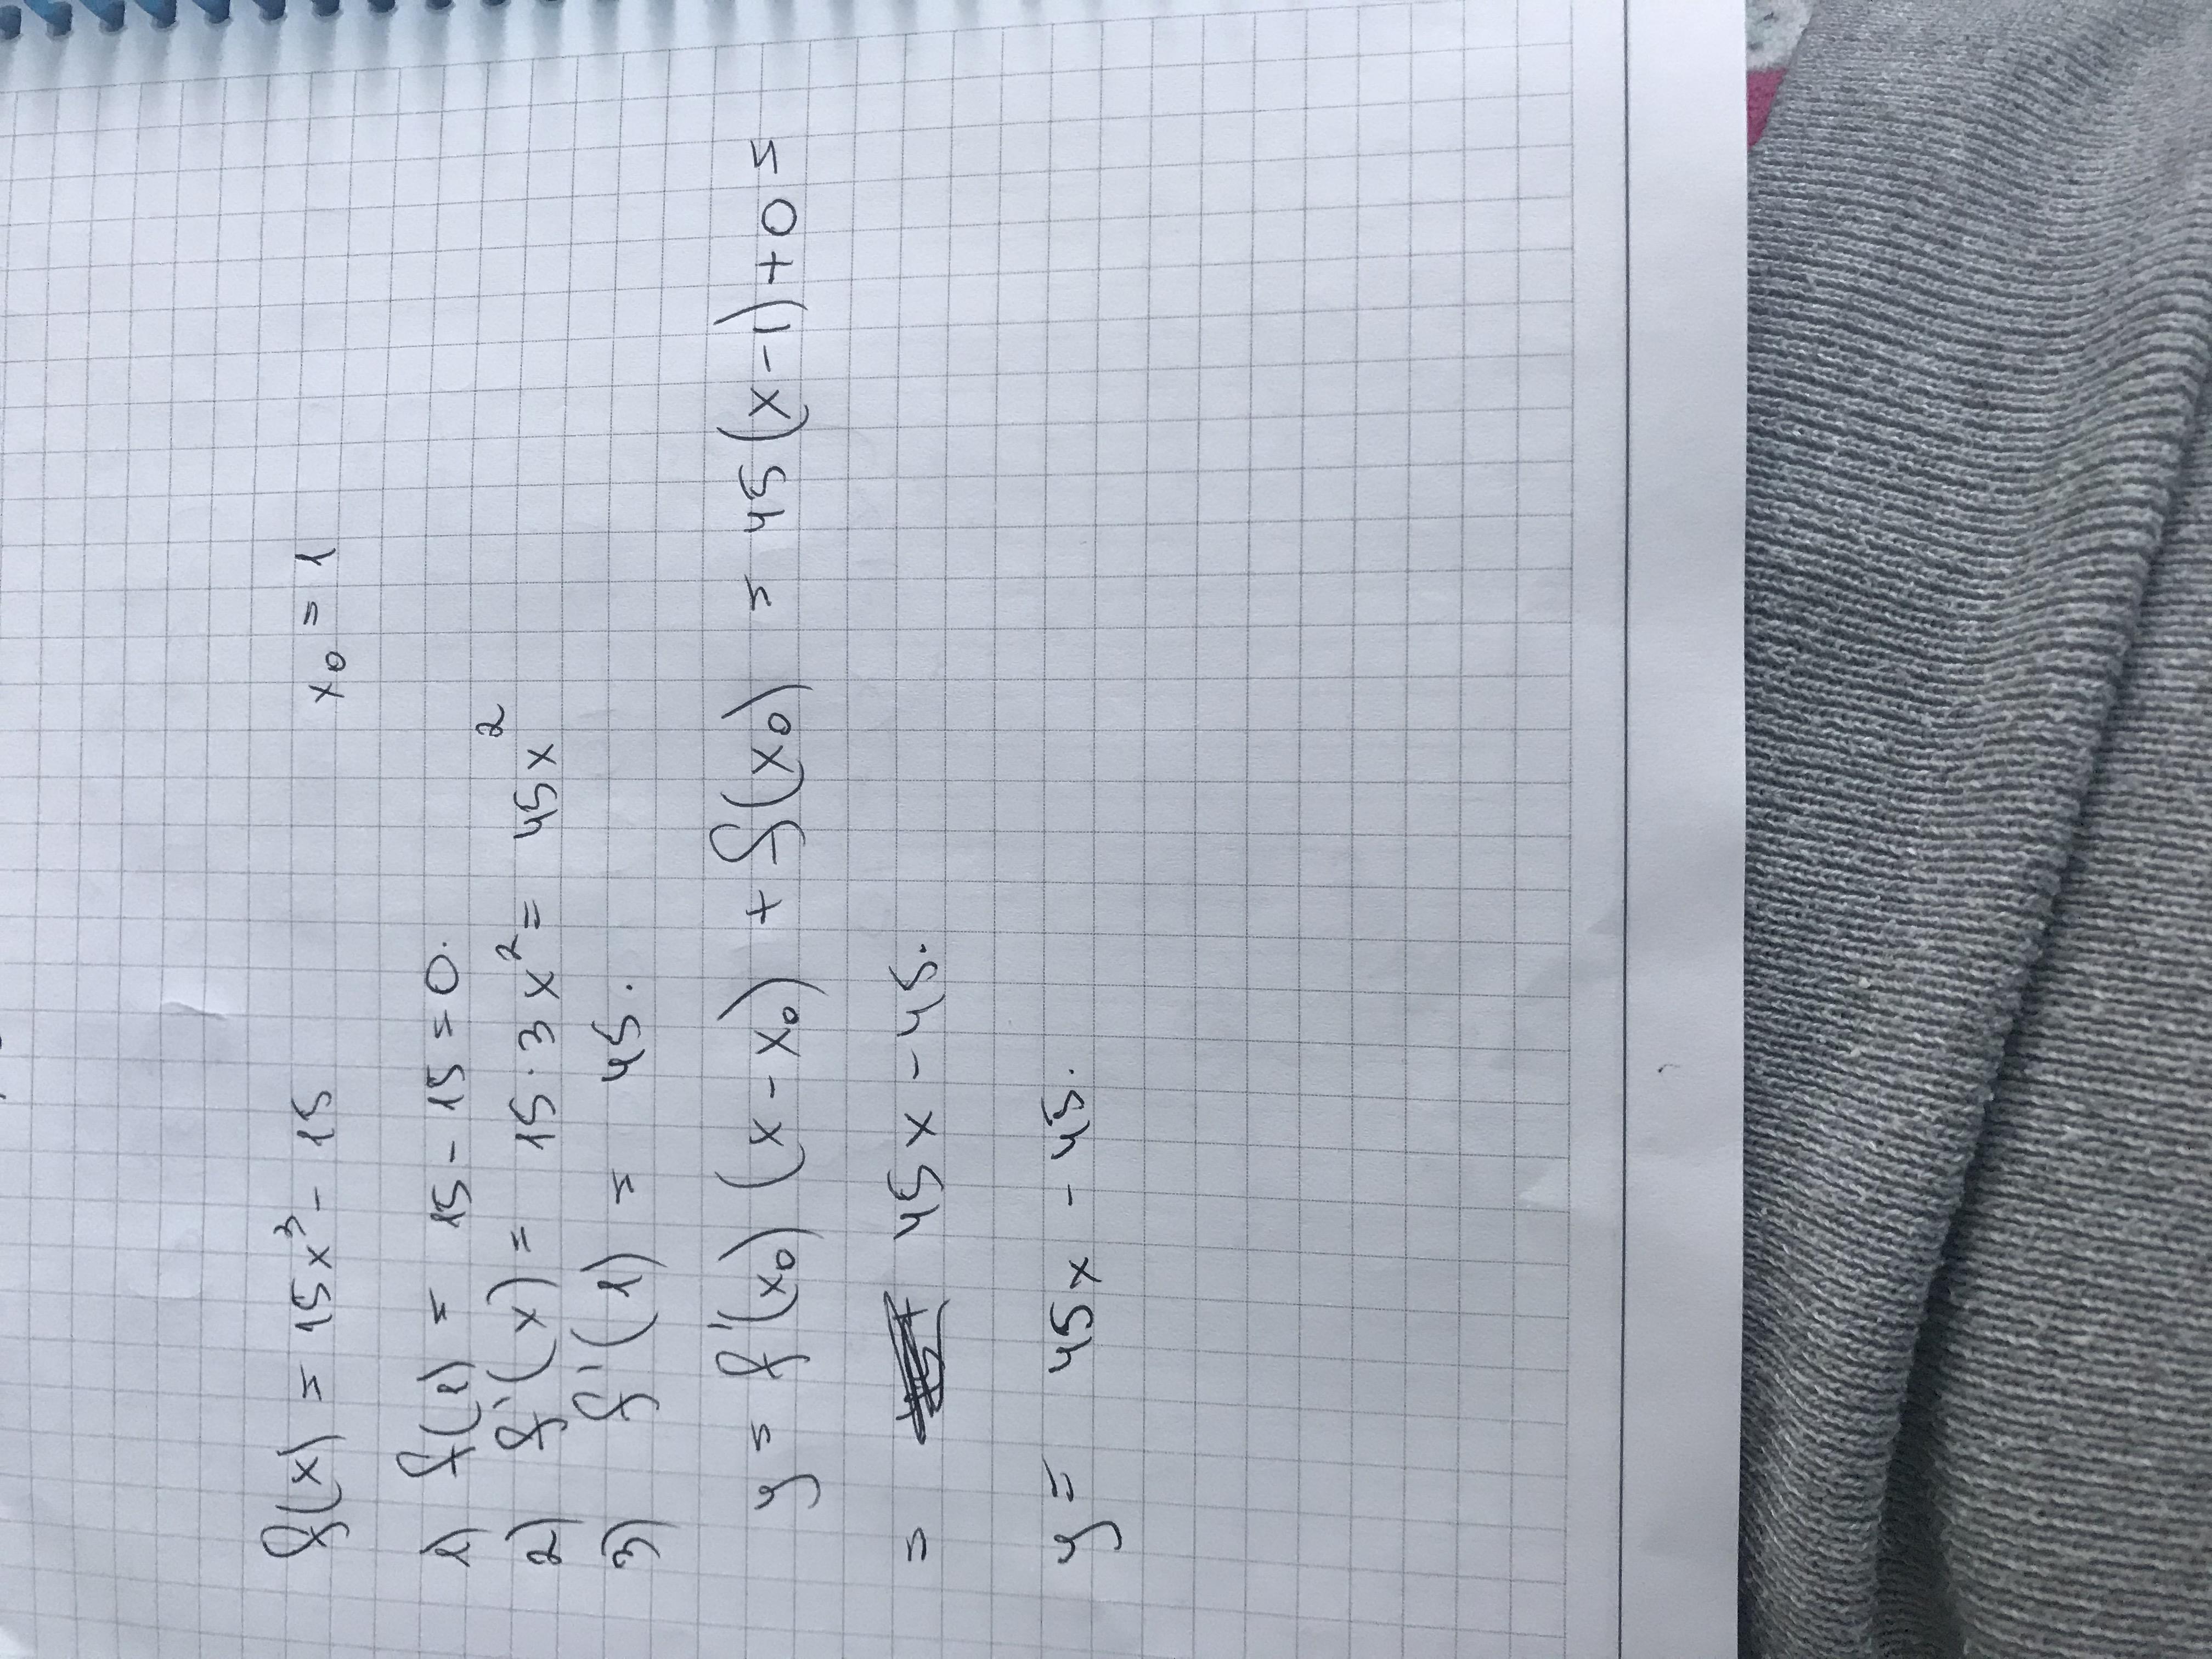 f(x) = 15x³ - 15   x₀ = 1
1) f(1) = 15 - 15 = 0.
2) f'(x) = 15 · 3x² = 45x²
3) f'(1) = 45.
y = f'(x₀) (x - x₀) + f(x₀) = 45(x-1)+0 =
= 45x - 45.
y = 45x - 45.